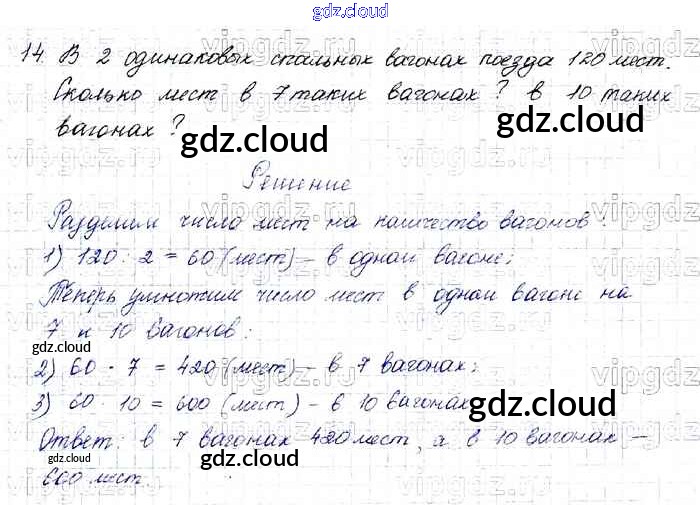 gdz.cloud
14. В 2 одинаковых спальных вагонах поезда 120 мест.
Сколько мест в 7 таких вагонах? в 10 таких
вагонах?
gdz.cloud
gdz.cloud
Решение
Разделим число мест на количество вагонов:
1) 120 : 2 = 60 (мест) – в одном вагоне;
gdz.cloud
Теперь умножим число мест в одном вагоне на
7 и 10 вагонов:
gdz.cloud
2) 60 · 7 = 420 (мест) – в 7 вагонах;
3) 60 · 10 = 600 (мест) – в 10 вагонах
gdz.cloud
Ответ: в 7 вагонах 420 мест, а в 10 вагонах –
gdz.cloud
600 мест.
gdz.cloud